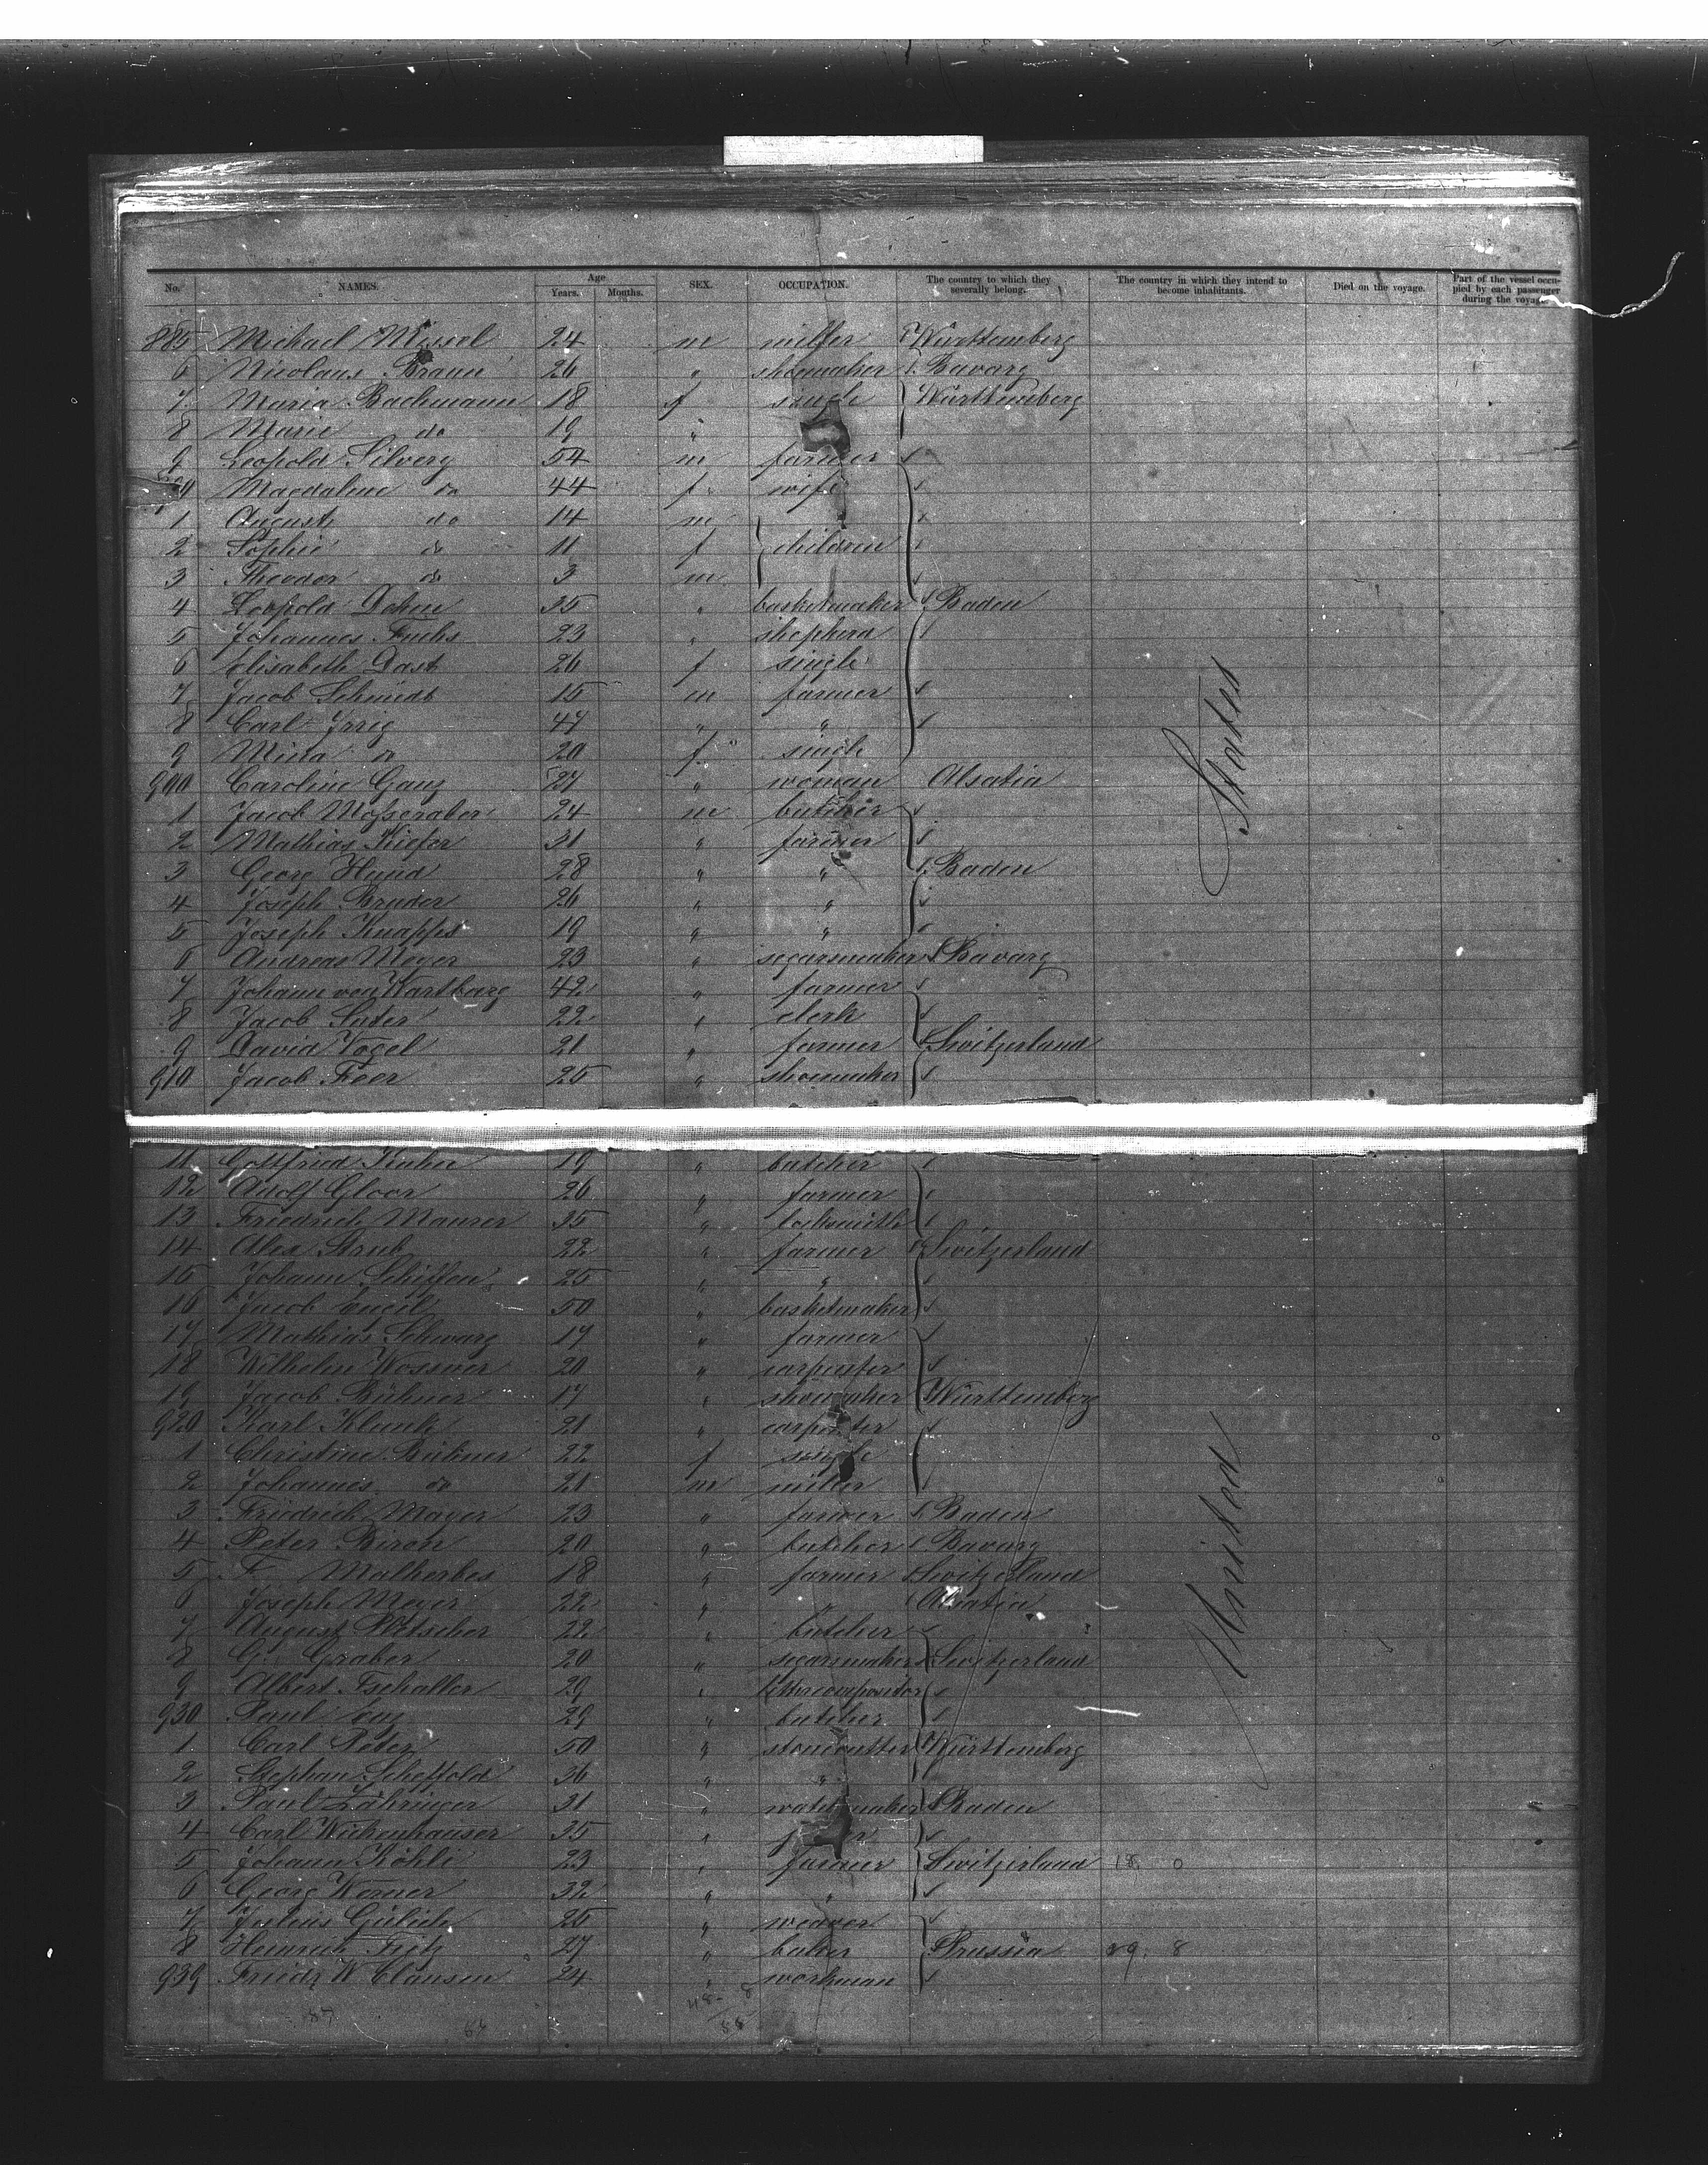 No. NAMES. Age Years. Months. SEX. OCCUPATION. The country to which they severally belong. The country in which they intend to become inhabitants. Died on the voyage. Part of the vessel occupied by each passenger during the voyage.
885 Michael 24 m miller Württemberg
6 Nicolaus Braun 26 " shoemaker Bavary
7 Maria Bachmann 18 f single Württemberg
8 Marie do 19 "
9 Leopold Silvery 54 m farmer
Magdalene do 44 f wife
1 August do 14 m
2 Sophie do 11 f children
3 Theodor do 3 m
4 Leopold Dehm 35 " basketmaker Baden
5 Johannes Fuchs 23 " shepherd
6 Elisabeth Dast 26 f single
7 Jacob Schmidt 15 m farmer
8 Carl Irrig 47 " "
9 Mina do 20 f single
900 Caroline Ganz 27 " woman Alsatia
1 Jacob 24 m butcher
2 Mathias Kiefer 31 " farmer
3 Georg Hund 28 " " Baden
4 Joseph Bruder 26 " "
5 Joseph Knapps 19 " "
6 Andreas Meyer 23 " segarsmaker Bavary
7 Johann von Wartburg 42 " farmer
8 Jacob Suter 22 " clerk
9 David Vogel 21 " farmer Switzerland
910 Jacob Feer 25 " shoemaker
States
11 Gottfried Kuhn 19 " butcher
12 Adolf Gloor 26 " farmer
13 Friedrich Maurer 35 " locksmith
14 Alex Strub 22 " farmer Switzerland
15 Johann 25 " "
16 Jacob 50 " basketmaker
17 Mathias Schwarz 17 " farmer
18 Wilhelm Wossner 20 " carpenter
19 Jacob Bühner 17 " shoemaker Württemberg
920 Karl Klenk 21 " carpenter
1 Christine Bübner 22 f single
2 Johannes do 21 m miller
3 Friedrich Mayer 23 " farmer Baden
4 Peter Biron 20 " butcher Bavary
5 F. Malherbes 18 " farmer Switzerland
6 Joseph Meyer 22 " " Alsatia
7 August 22 " butcher
8 G. Graber 20 " segarsmaker Switzerland
9 Albert Tschaller 29 "
930 Paul Enz 29 " butcher
1 Carl Peter 50 " stonecutter Württemberg
2 Stephan Scheffold 36 " "
3 Paul Zähringer 31 " watchmaker Baden
4 Carl Wickenhauser 35 "
5 Johann Köhli 23 " farmer Switzerland
6 Georg Werner 32 " "
7 Julius Gülich 25 " weaver
8 Heinrich Fritz 27 " baker Prussia
939 Friedr W Clausen 24 " workman
United